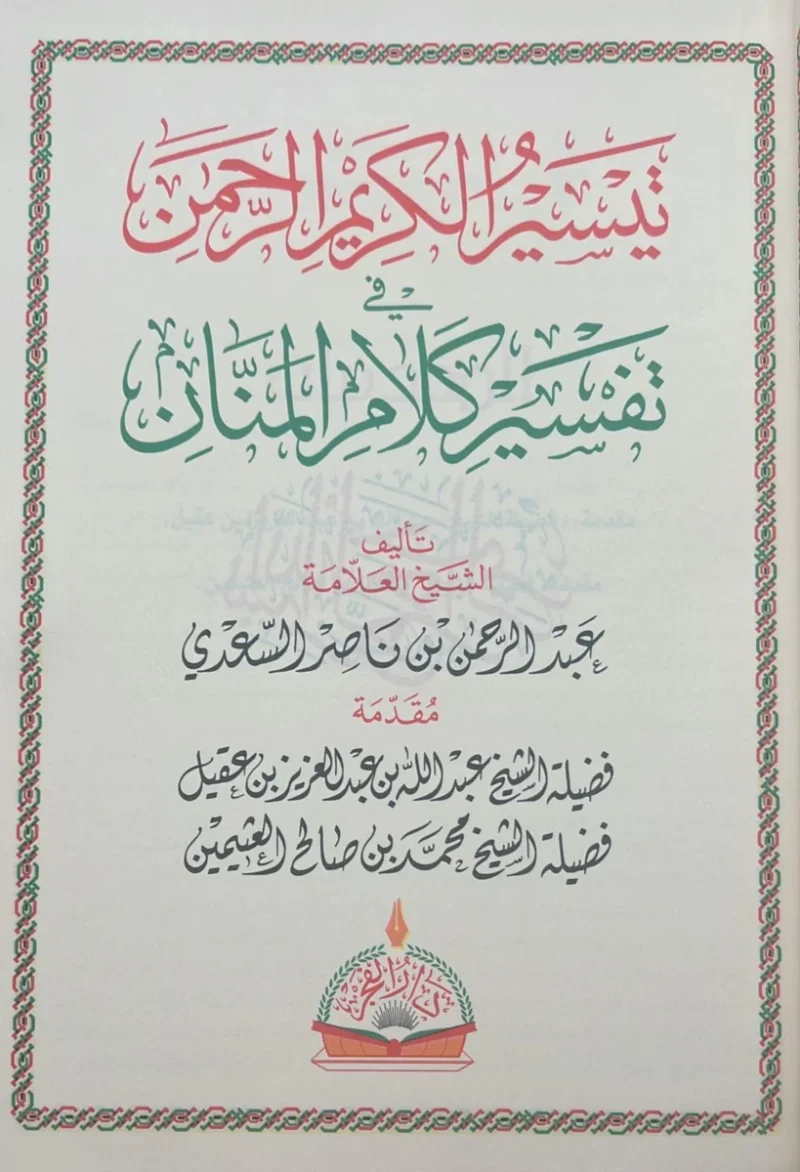 تَيسِيرُ الكَرِيمِ الرَّحمَنِ
في
تَفسِيرِ كَلَامِ المَنَّانِ
تَأليف
الشَّيخ العَلّامَة
عَبْد الرَّحمٰن بْن نَاصِر السَّعْدي
مُقَدّمَة
فضيلة الشيخ عبد الله بن عبد العزيز بن عقيل
فضيلة الشيخ محمَّد بن صالح العثيمين
دار الفجر